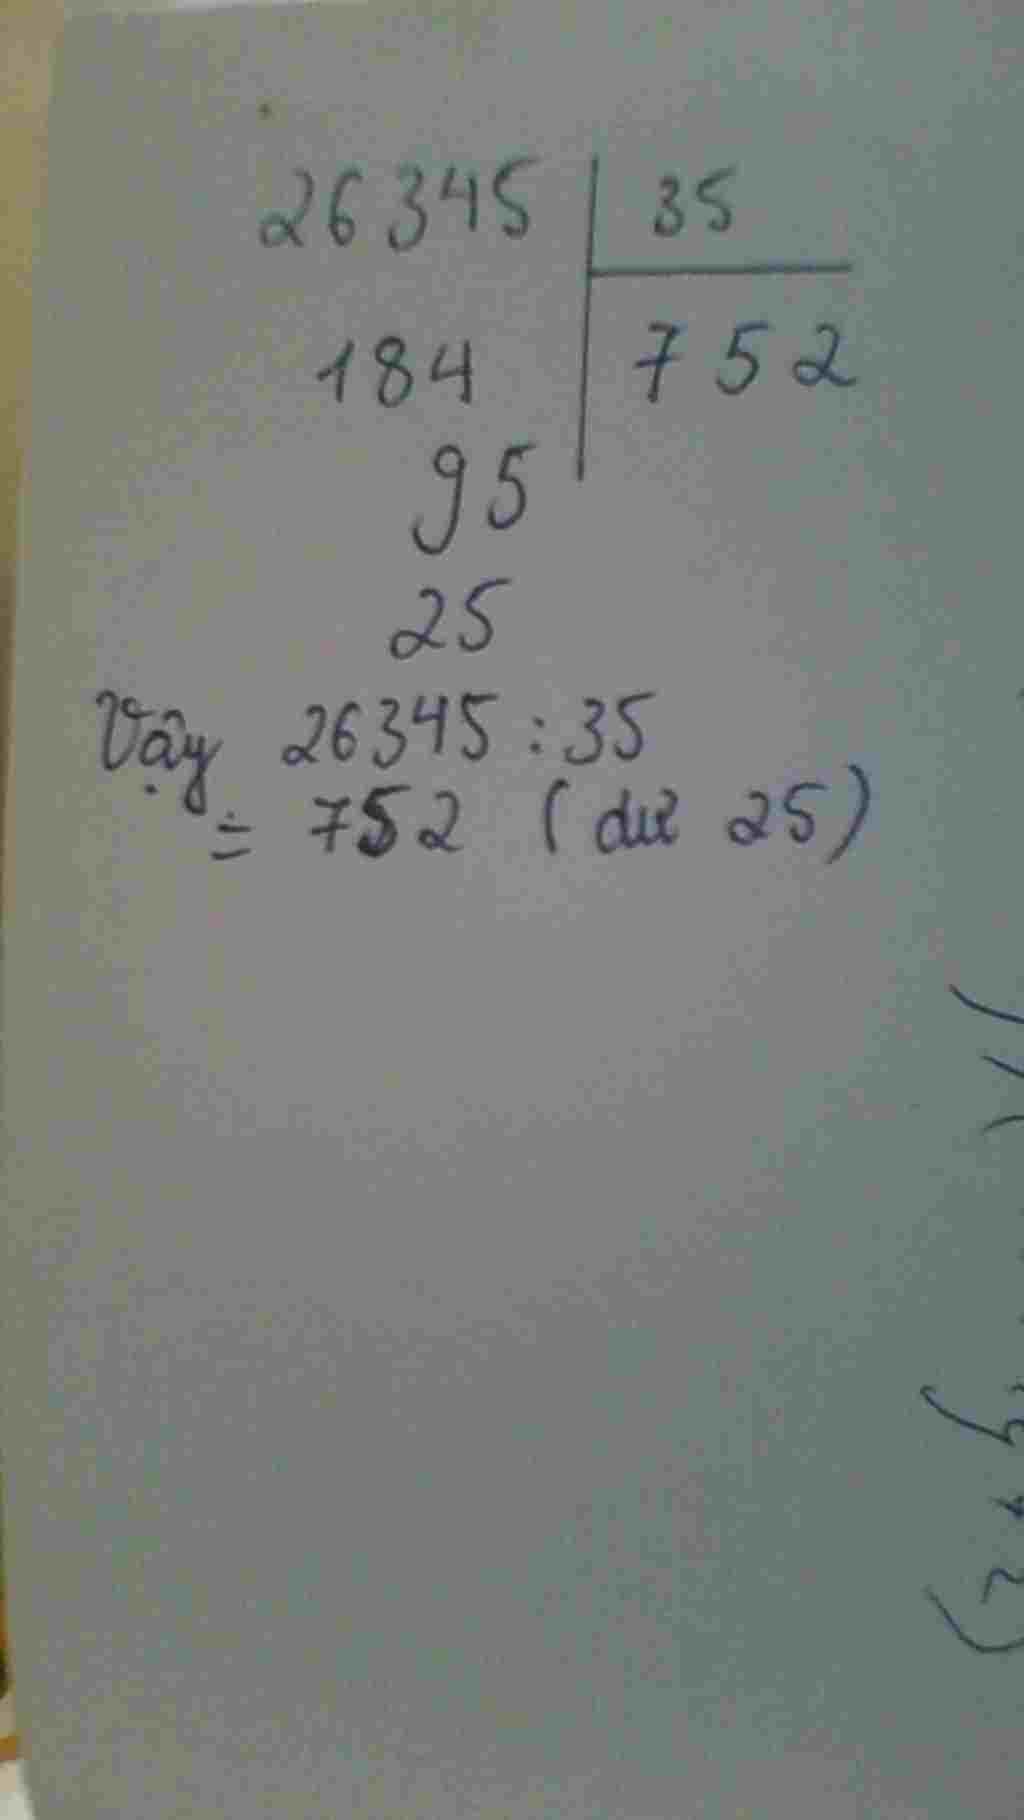 26345 35
184 752
95
25
Vậy 26345 : 35
= 752 (dư 25)